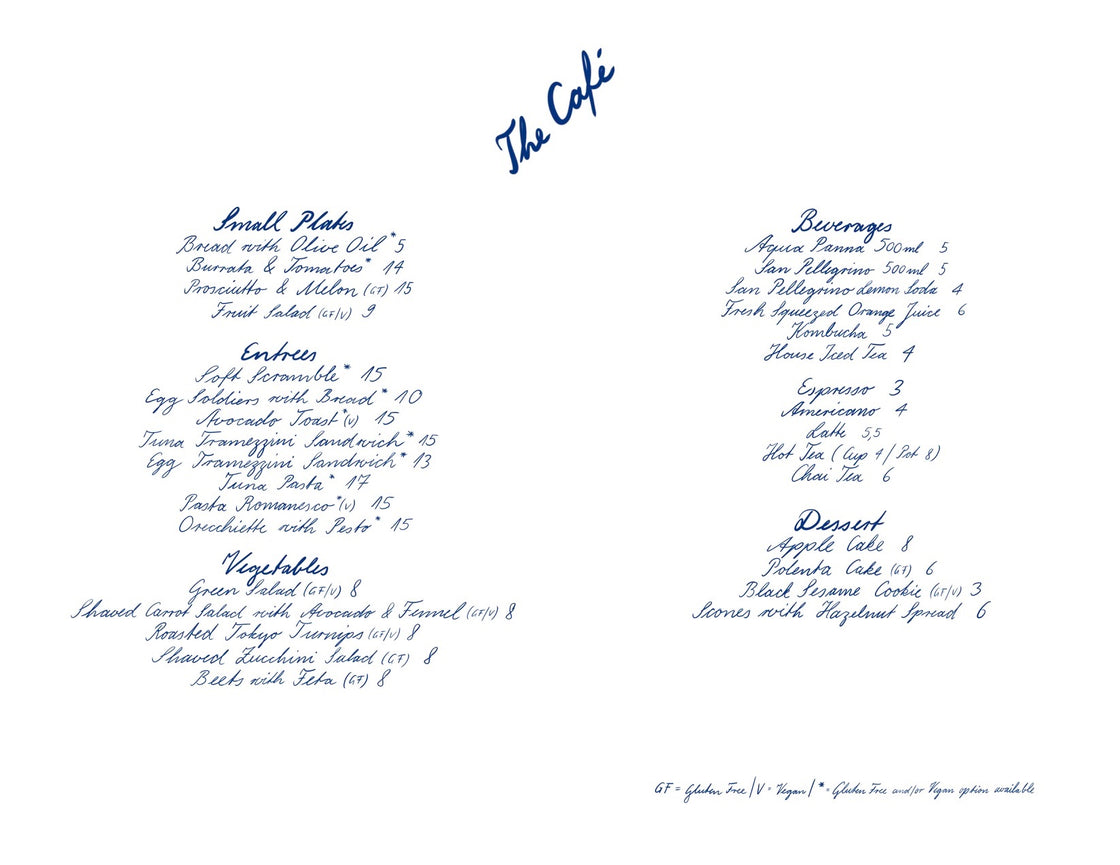 The Café
Small Plates
Bread with Olive Oil * 5
Burrata & Tomatoes* 14
Prosciutto & Melon (GF) 15
Fruit Salad (GF/V) 9
Entrees
Soft Scramble* 15
Egg Soldiers with Bread* 10
Avocado Toast*(V) 15
Tuna Tramezzini Sandwich* 15
Egg Tramezzini Sandwich* 13
Tuna Pasta* 17
Pasta Romanesco*(V) 15
Orecchiette with Pesto* 15
Vegetables
Green Salad (GF/V) 8
Shaved Carrot Salad with Avocado & Fennel (GF/V) 8
Roasted Tokyo Turnips (GF/V) 8
Shaved Zucchini Salad (GF) 8
Beets with Feta (GF) 8
Beverages
Aqua Panna 500ml 5
San Pellegrino 500ml 5
San Pellegrino Lemon Soda 4
Fresh Squeezed Orange Juice 6
Kombucha 5
House Iced Tea 4
Espresso 3
Americano 4
Latte 5,5
Hot Tea (Cup 4 / Pot 8)
Chai Tea 6
Dessert
Apple Cake 8
Polenta Cake (GF) 6
Black Sesame Cookie (GF/V) 3
Scones with Hazelnut Spread 6
GF = Gluten Free / V = Vegan / * = Gluten Free and/or Vegan option available